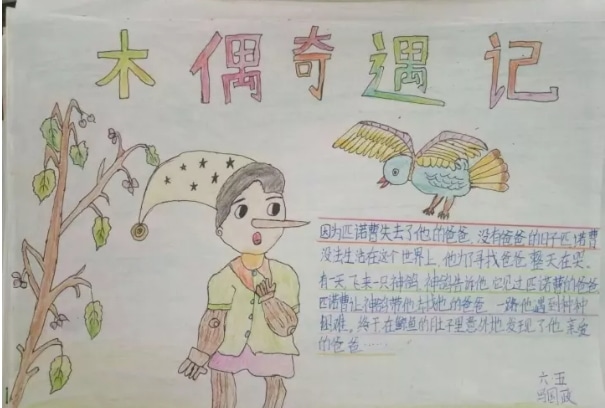 木偶奇遇记
因为匹诺曹失去了他的爸爸,没有爸爸的日子匹诺曹
没法生活在这个世界上,他为了寻找爸爸,整天在哭,
有一天,飞来一只神鸽,神鸽告诉他,它见过匹诺曹的爸爸
匹诺曹让神鸽带他去找他的爸爸,一路他遇到种种
困难,终于在鲸鱼的肚子里意外地发现了他亲爱
的爸爸……
六五
国政